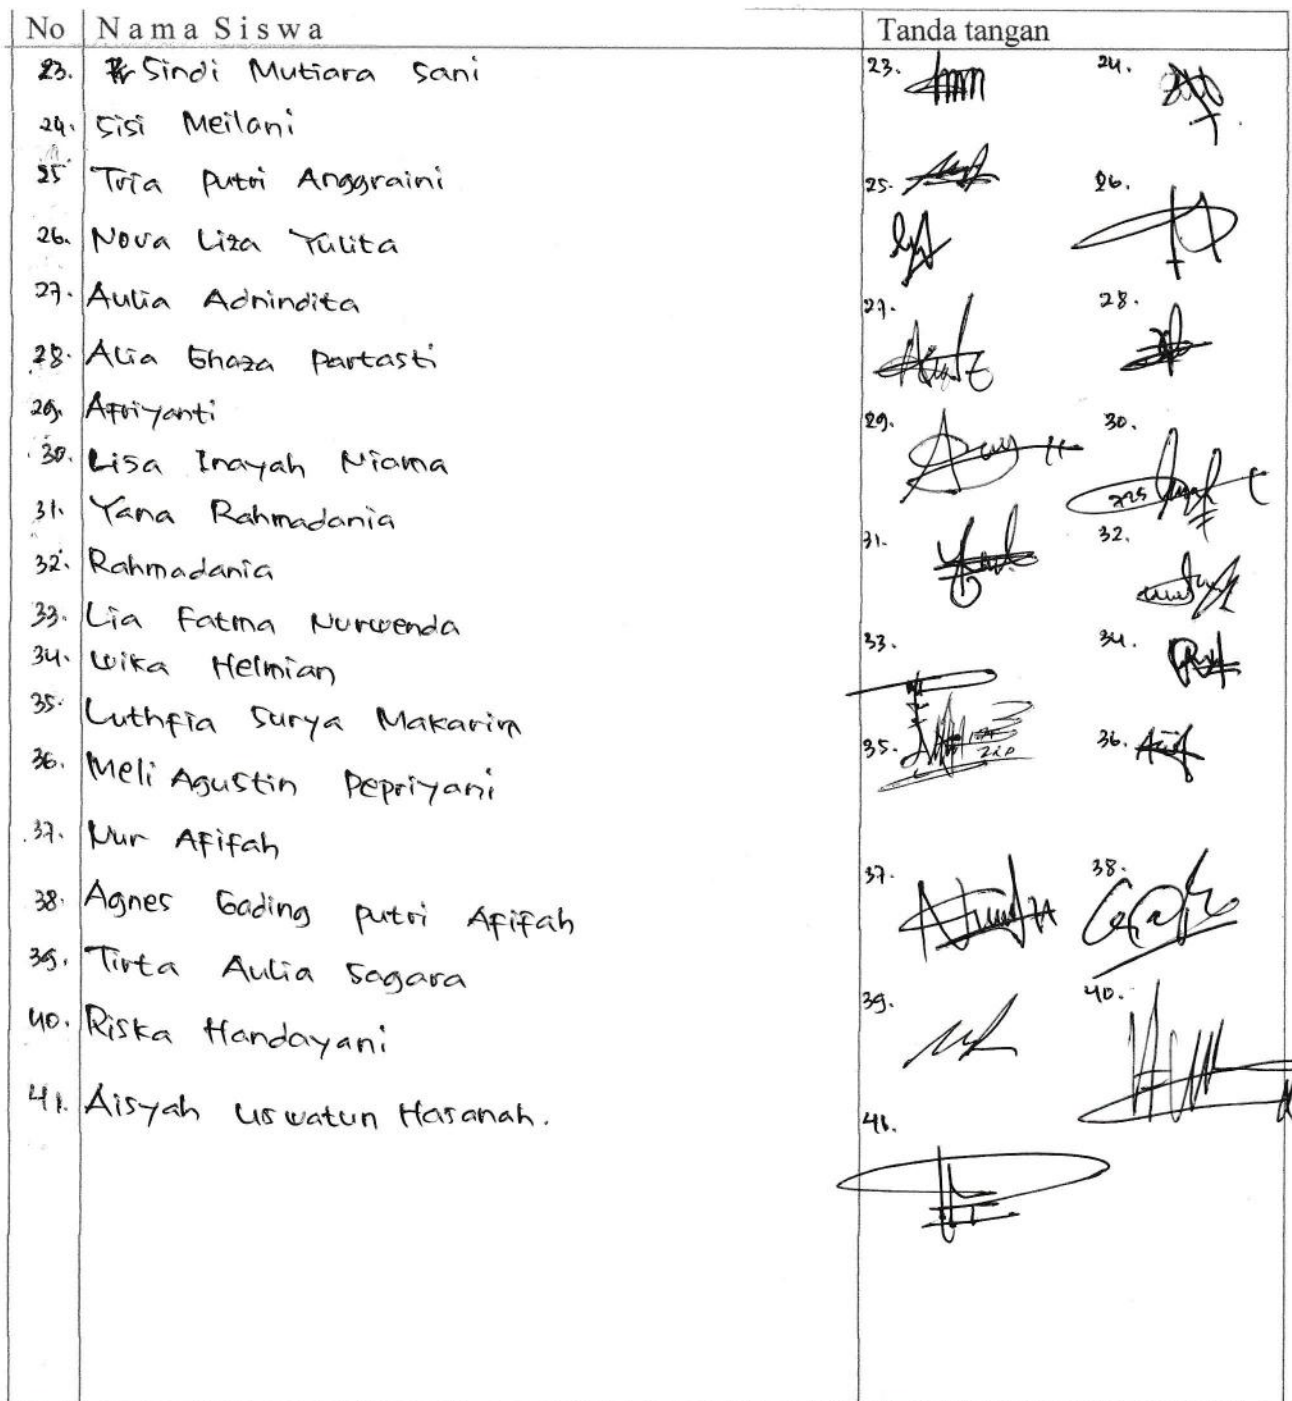 No Nama Siswa Tanda tangan
23. Sindi Mutiara Sani 23. 24.
24. Sisi Meilani
25 Tria Putri Anggraini 25. 26.
26. Nova Liza Yulita
27. Aulia Adnindita 27. 28.
28. Alia Ghaza Partasti
29. Afriyanti 29. 30.
30. Lisa Inayah Niama
31. Yana Rahmadania 31. 32.
32. Rahmadania
33. Lia Fatma Nurwenda 33. 34.
34. Wika Helmian
35. Luthfia Surya Makarim 35. 36.
36. Meli Agustin Pepriyani
37. Nur Afifah 37. 38.
38. Agnes Gading Putri Afifah
39. Tirta Aulia Sagara 39. 40.
40. Riska Handayani
41. Aisyah Uswatun Hasanah. 41.